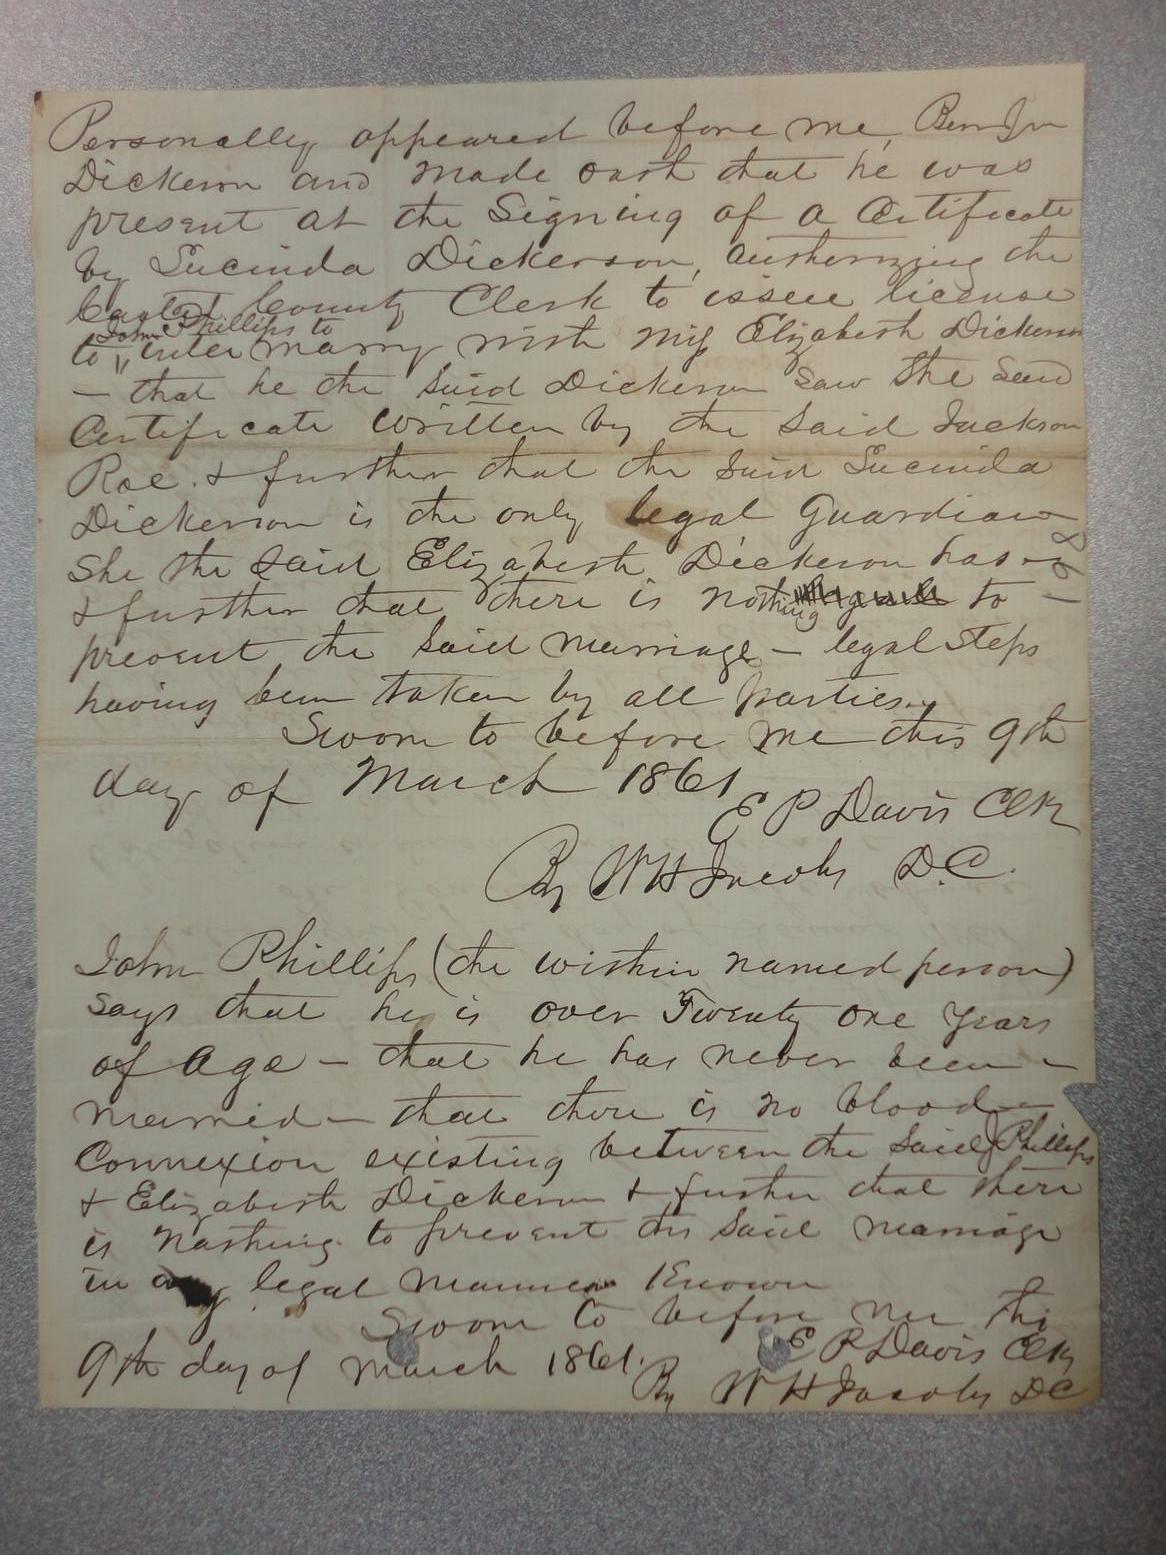 Personally appeared before me, Benjn
Dickerson and made oath that he was
present at the Signing of a Certificate
by Lucinda Dickerson, authorizing the
Carter County Clerk to issue license
John Phillips to
to " intermarry with Miss Elizabeth Dickerson
— that he the said Dickerson saw the said
Certificate written by the said Jackson
Roe. & further that the said Lucinda
Dickerson is the only legal Guardian
She the said Elizabeth Dickerson has —
& further that there is nothing to
prevent the said marriage — legal steps
having been taken by all parties.
Sworn to before me this 9th
day of March 1861
E P Davis Clk
By W H Jacobs D.C.
John Phillips (the within named person)
says that he is over Twenty one years
of Age — that he has never been —
married — that there is no blood —
Connexion existing between the said J Phillips
& Elizabeth Dickerson & further that there
is nothing to prevent the said marriage
in any legal manner Known
Sworn to before me this
9th day of March 1861.
E P Davis Clk
By W H Jacobs DC